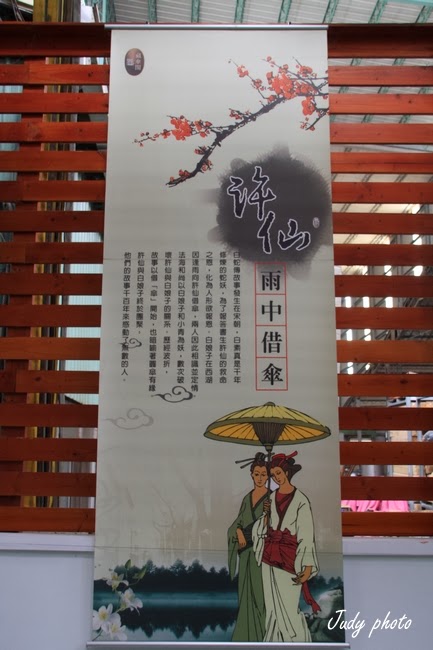 許仙
雨中借傘
白蛇傳故事發生在宋朝,白素貞是千年
修煉的蛇妖,為了報答書生許仙的救命
之恩,化為人形欲報恩,白娘子在西湖
因逢雨向許仙借傘,兩人因此相識並定情
法海和尚以白娘子和小青為妖,數次破
壞許仙與白娘子的關系,歷經波折,
故事以借「傘」開始,也隱喻著圓傘有緣
許仙與白娘子終於團聚,
他們的故事千百年來感動了無數的人。
Judy photo